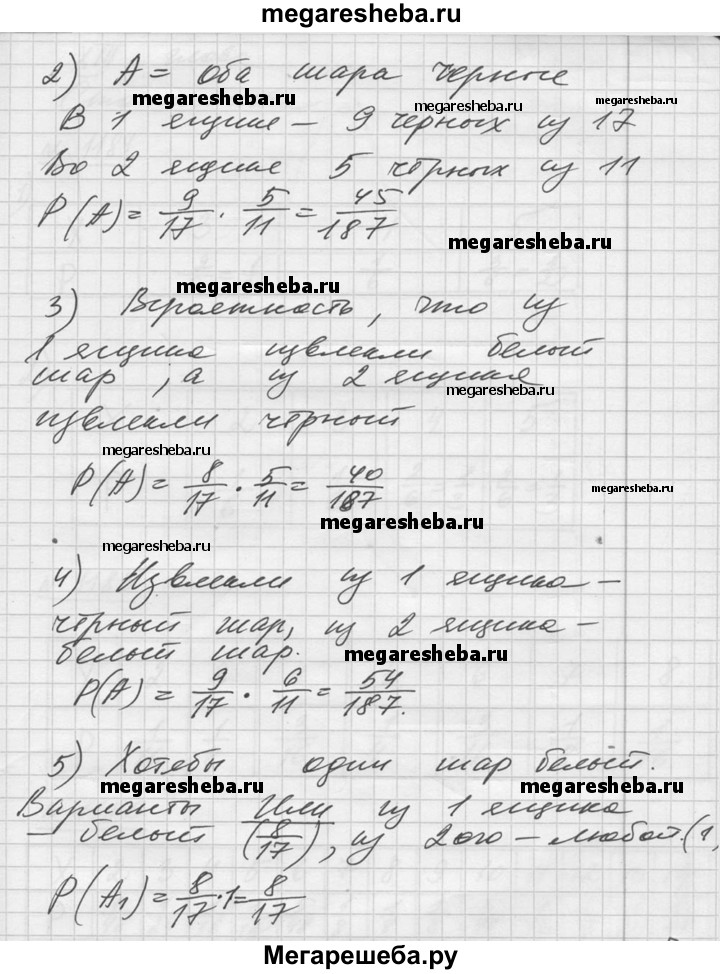 megaresheba.ru
2) A = оба шара черные
megaresheba.ru megaresheba.ru megaresheba.ru
В 1 ящике — 9 черных из 17
Во 2 ящике 5 чёрных из 11
P(A) = 9/17 · 5/11 = 45/187
megaresheba.ru
megaresheba.ru
3) Вероятность, что из
1 ящика извлекли белый
шар, а из 2 ящика
megaresheba.ru
извлекли чёрный
megaresheba.ru
P(A) = 8/17 · 5/11 = 40/187
megaresheba.ru
megaresheba.ru
megaresheba.ru
4) Извлекли из 1 ящика —
чёрный шар, из 2 ящика —
белый шар.
megaresheba.ru
P(A) = 9/17 · 6/11 = 54/187.
5) Хотебы один шар белый.
megaresheba.ru megaresheba.ru
Варианты Или из 1 ящика
— белый (8/17), из 2ого — любой. (1,
P(A₁) = 8/17 · 1 = 8/17
Мегарешеба.ру